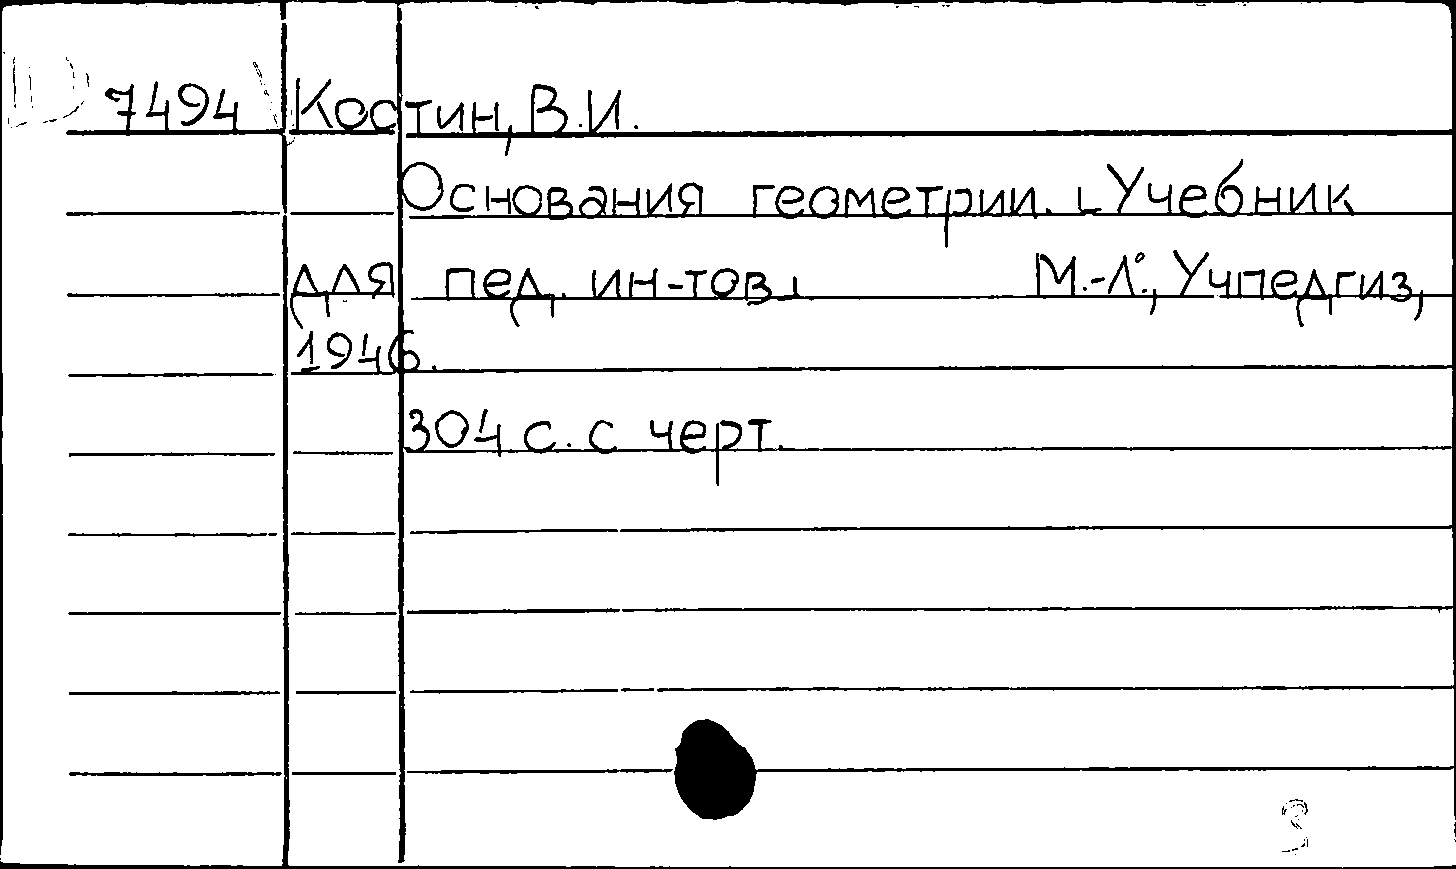 7494 Костин, В.И.
Основания геометрии. [Учебник
для пед. ин-тов] М.-Л., Учпедгиз,
1946.
304 с. с черт.
3